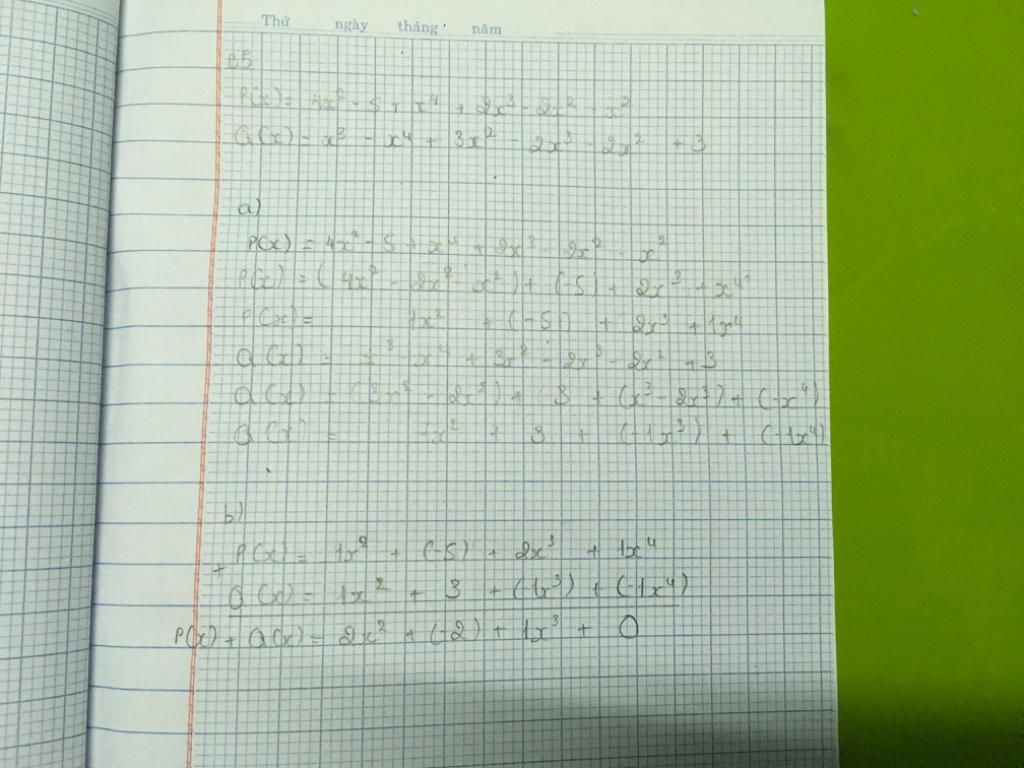 Thứ ngày tháng năm
B5
P(x) = 4x² - 5 + x⁴ + 2x³ - 2x² - x²
Q(x) = x³ - x⁴ + 3x² - 2x³ - 2x² + 3
a)
P(x) = 4x² - 5 + x⁴ + 2x³ - 2x² - x²
P(x) = (4x² - 2x² - x²) + (-5) + 2x³ + x⁴
P(x) = 1x² + (-5) + 2x³ + 1x⁴
Q(x) = x³ - x⁴ + 3x² - 2x³ - 2x² + 3
Q(x) = (3x² - 2x²) + 3 + (x³ - 2x³) + (-x⁴)
Q(x) = 1x² + 3 + (-1x³) + (-1x⁴)
b)
P(x) = 1x² + (-5) + 2x³ + 1x⁴
+
Q(x) = 1x² + 3 + (-1x³) + (-1x⁴)
P(x) + Q(x) = 2x² + (-2) + 1x³ + 0